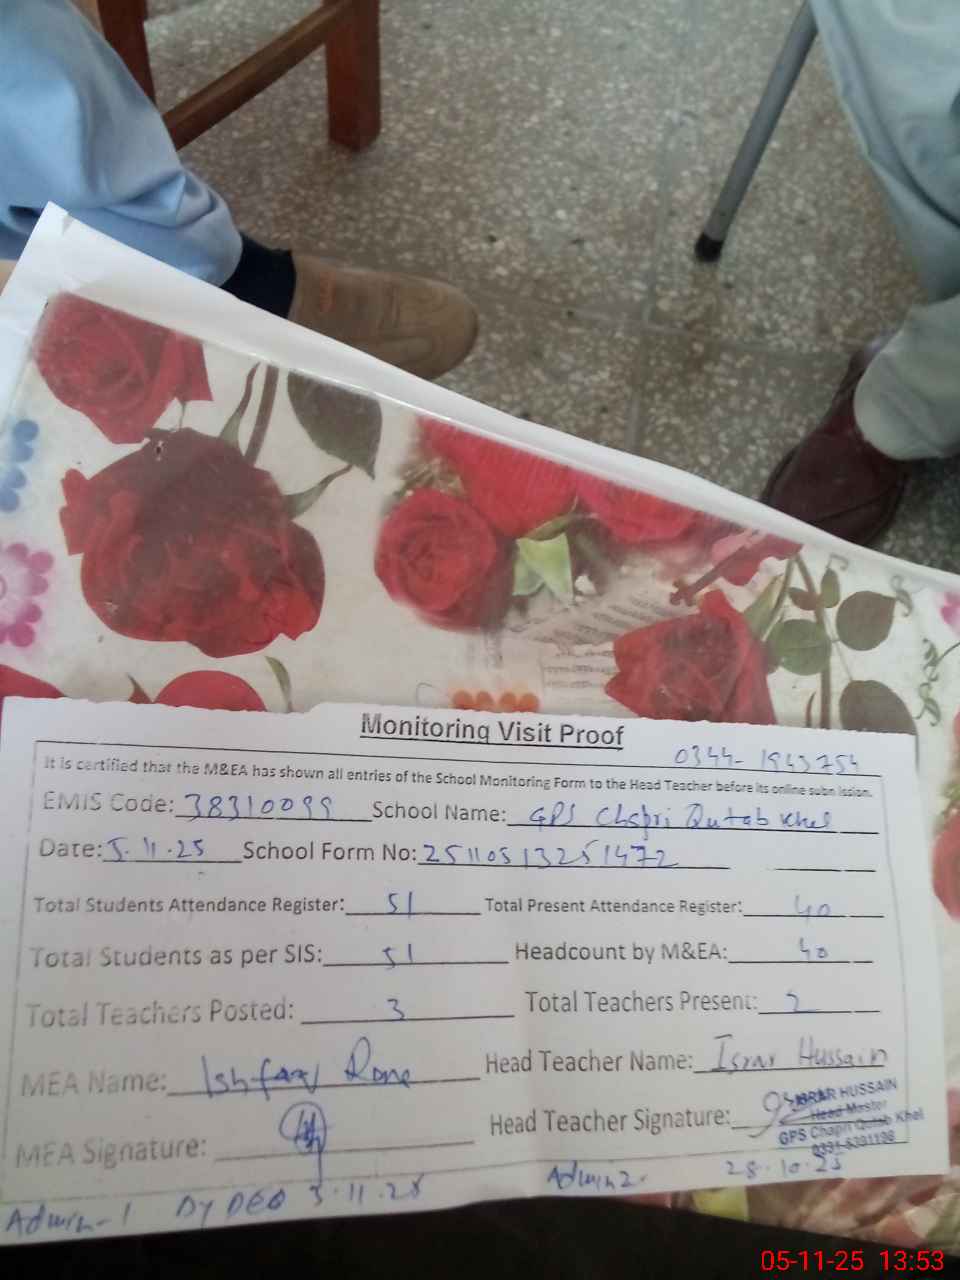 Monitoring Visit Proof
0344-1943754
It is certified that the M&EA has shown all entries of the School Monitoring Form to the Head Teacher before its online submission.
EMIS Code: 38310099 School Name: GPS Chapri Qutab Khel
Date: 5.11.25 School Form No: 25110513251472
Total Students Attendance Register: 51 Total Present Attendance Register: 40
Total Students as per SIS: 51 Headcount by M&EA: 40
Total Teachers Posted: 3 Total Teachers Present: 2
MEA Name: Ishfaq Head Teacher Name: Israr Hussain
MEA Signature: Head Teacher Signature:
ISRAR HUSSAIN
Head Master
GPS Chapri Qutab Khel
Admin-1 Dy DEO 3.11.25 Admin 2. 28.10.25
05-11-25 13:53